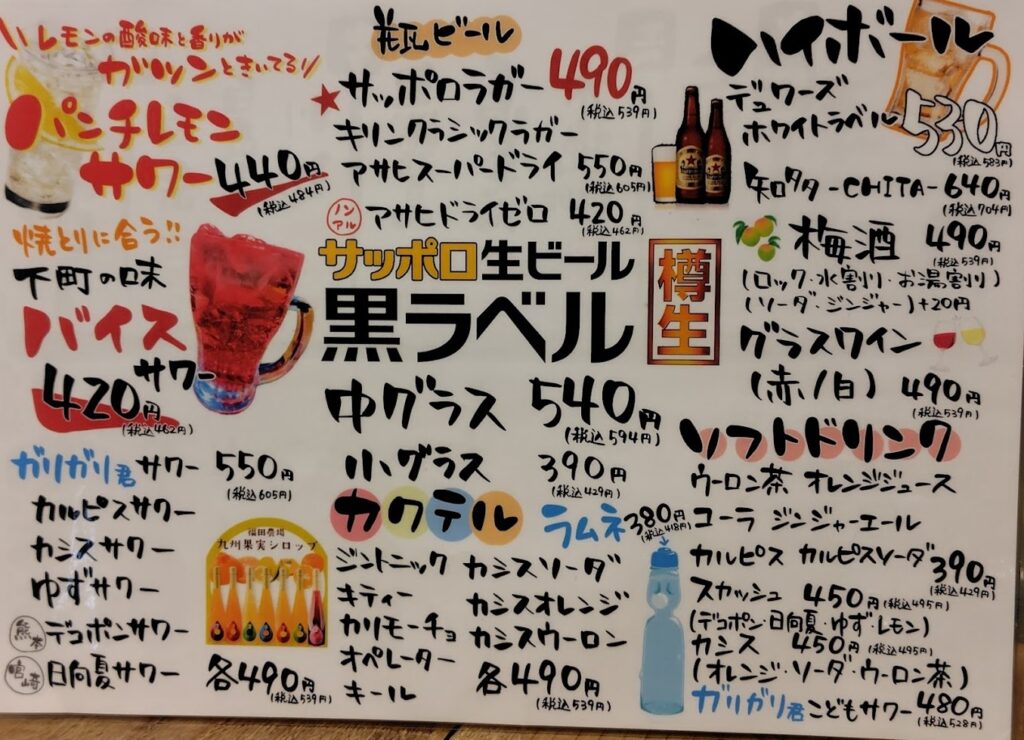 レモンの酸味と香りが
ガツンときいてるり
パンチレモン
サワー 440円
(税込484円)
焼とりに合う!!
下町の味
バイス
サワー
420円
(税込462円)
ガリガリ君サワー 550円
(税込605円)
カルピスサワー
カシスサワー
ゆずサワー
熊本 デコポンサワー
宮崎 日向夏サワー 各490円
(税込539円)
福田農場
九州果実シロップ
瓶ビール
★サッポロラガー 490円
(税込539円)
キリンクラシックラガー
アサヒスーパードライ 550円
(税込605円)
ノンアル アサヒドライゼロ 420円
(税込462円)
サッポロ生ビール
黒ラベル
樽生
中グラス 540円
(税込594円)
小グラス 390円
(税込429円)
カクテル
ジントニック カシスソーダ
キティー カシスオレンジ
カリモーチョ カシスウーロン
オペレーター
キール 各490円
(税込539円)
ラムネ 380円
(税込418円)
ハイボール
デュワーズ
ホワイトラベル 530円
(税込583円)
知多 -CHITA- 640円
(税込704円)
梅酒 490円
(税込539円)
(ロック・水割り・お湯割り)
(ソーダ・ジンジャー)+20円
グラスワイン
(赤/白) 490円
(税込539円)
ソフトドリンク
ウーロン茶 オレンジジュース
コーラ ジンジャーエール
カルピス カルピスソーダ 390円
(税込429円)
スカッシュ 450円(税込495円)
(デコポン・日向夏・ゆず・レモン)
カシス 450円(税込495円)
(オレンジ・ソーダ・ウーロン茶)
ガリガリ君こどもサワー 480円
(税込528円)